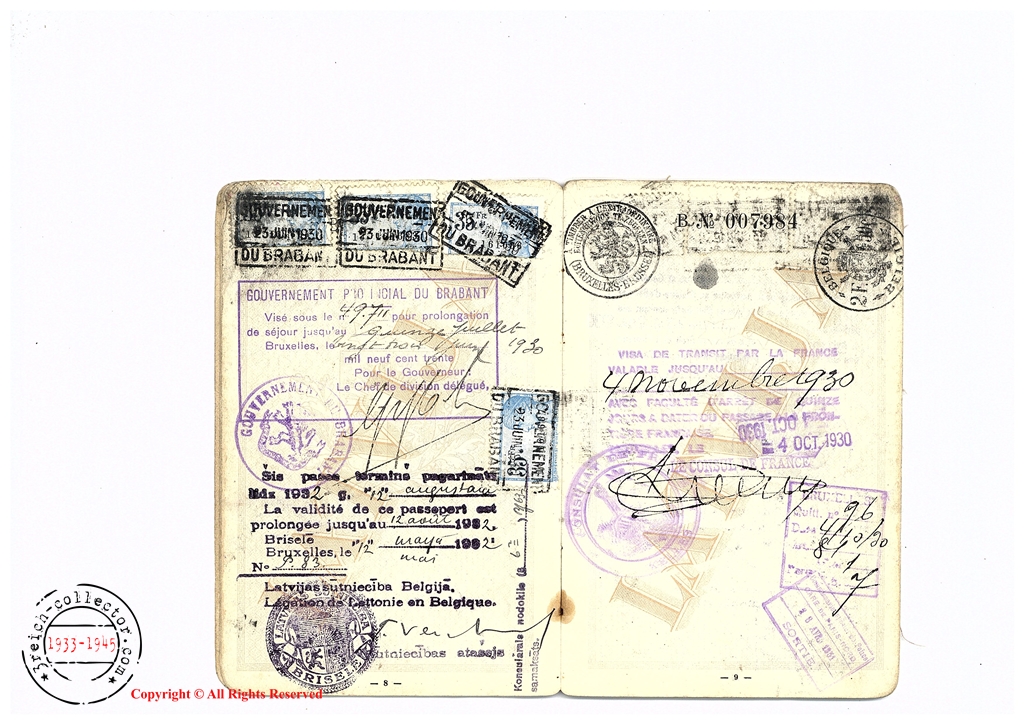 GOUVERNEMEN
23 JUIN 1930
DU BRABANT
GOUVERNEMEN
23 JUIN 1930
DU BRABANT
GOUVERNEMEN
DU BRABANT
GOUVERNEMENT PRO INCIAL DU BRABANT
Visé sous le n° pour prolongation
de séjour jusqu'au quinze juillet
Bruxelles, le vingt trois juin 1930
mil neuf cent trente
Pour le Gouverneur:
Le Chef de division délégué,
GOUVERNEMENT DU BRABANT
GOUVERNEMEN
23 JUIN
DU BRABANT
Šis pase termiņš pagarināts
līdz 1932 g. "12" augustam
La validité de ce passeport est
prolongée jusqu'au 12 août 1932.
Briselē
Bruxelles, le "12" maijā 1932
mai
No P. 83.
Latvijas sūtniecība Beļģijā.
Légation de Lettonie en Belgique.
BRISELE
sūtniecības atašejs
Konsulārais nodoklis
samaksāts.
— 8 —
B. No 007984
(BRUXELLES-BRUNSEL)
BELGIQUE
2 F
BELGI
VISA DE TRANSIT PAR LA FRANCE
VALABLE JUSQU'AU
4 Novembre 1930
AVEC FACULTÉ D'ARRET DE QUINZE
JOURS A DATER DU PASSAGE A LA FRON-
TIÈRE FRANÇAISE
4 OCT. 1930
LE CONSUL DE FRANCE
CONSULAT
BRUXELLES
Quitt. N° 96
Date 4/10/30
SORTIE
— 9 —
3reich-collector.com
1933-1945
Copyright © All Rights Reserved